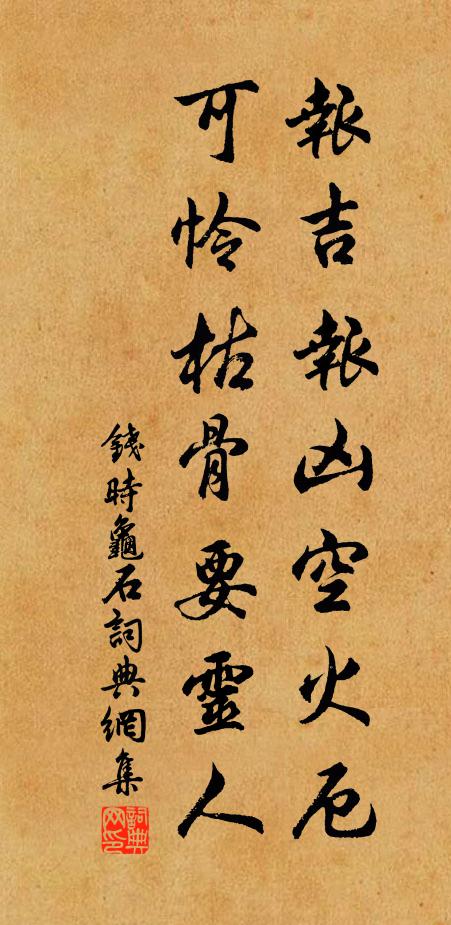 報吉報凶空火厄
可怜枯骨要靈人
錢時龜石詞典網集
詞典网印